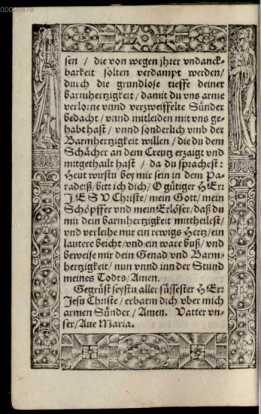 sen / die von wegen jhrer vndanck-
barkeit solten verdampt werden/
durch die grundlose tieffe deiner
barmhertzigkeit / damit du vns arme
verlorne vnnd verzweiffelte Sünder
bedacht / vnnd mitleiden mit vns ge-
habt hast / vnnd sonderlich vmb der
Barmhertzigkeit willen / die du dem
Schächer an dem Creutz erzaigt vnd
mitgethailt hast / da du sprachest :
Heut wirstu bey mir sein in dem Pa-
radeiß / bitt ich dich / O gütiger HEr:
JESV Christe / mein Gott / mein
Schöpffer vnd mein Erlöser / daß du
mir dein barmhertzigkeit mittheilest /
vnd verleihe mir ein rewigs Hertz / ein
lautere beicht / vnd ein ware buß / vnd
beweise mir dein Genad vnd Barm-
hertzigkeit / nun vnnd inn der Stund
meines Todts / Amen.
Gegrüst seystu aller süssester HEr:
Jesu Christe / erbarm dich vber mich
armen Sünder / Amen. Vatter vn-
ser / Aue Maria.